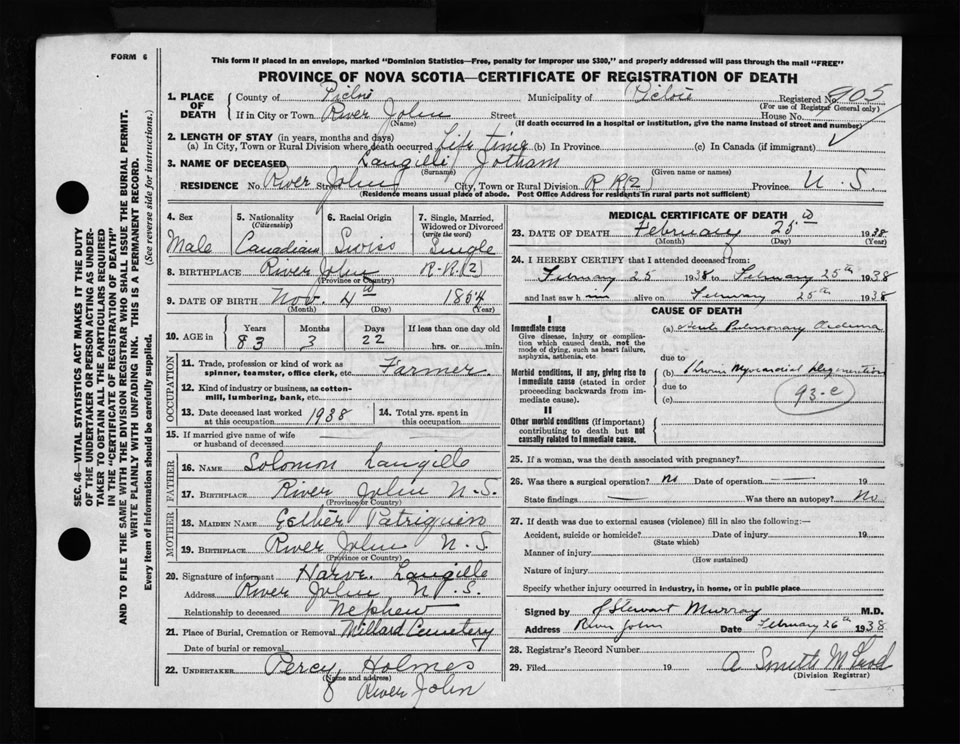 FORM 6
This form if placed in an envelope, marked "Dominion Statistics—Free, penalty for improper use $300," and properly addressed will pass through the mail "FREE"
PROVINCE OF NOVA SCOTIA—CERTIFICATE OF REGISTRATION OF DEATH
SEC. 46—VITAL STATISTICS ACT MAKES IT THE DUTY
OF THE UNDERTAKER OR PERSON ACTING AS UNDER-
TAKER TO OBTAIN ALL THE PARTICULARS REQUIRED
IN THE "CERTIFICATE OF REGISTRATION OF DEATH"
AND TO FILE THE SAME WITH THE DIVISION REGISTRAR WHO SHALL ISSUE THE BURIAL PERMIT.
WRITE PLAINLY WITH UNFADING INK. THIS IS A PERMANENT RECORD.
Every item of information should be carefully supplied. (See reverse side for instructions.)
1. PLACE OF DEATH
County of Pictou Municipality of Pictou Registered No. 905
(For use of Registrar General only)
If in City or Town River John Street House No.
(Name) (If death occurred in a hospital or institution, give the name instead of street and number)
2. LENGTH OF STAY (in years, months and days)
(a) In City, Town or Rural Division where death occurred Life time (b) In Province (c) In Canada (if immigrant)
3. NAME OF DECEASED Langille Jotham
(Surname) (Given name or names)
RESIDENCE No. River Street John City, Town or Rural Division R R (2) Province N. S.
(Residence means usual place of abode. Post Office Address for residents in rural parts not sufficient)
4. Sex Male
5. Nationality (Citizenship) Canadian
6. Racial Origin Swiss
7. Single, Married, Widowed or Divorced (write the word) Single
8. BIRTHPLACE River John R.R. (2)
(Province or Country)
9. DATE OF BIRTH Nov. 4 1854
(Month) (Day) (Year)
10. AGE in Years Months Days If less than one day old
83 3 22 hrs. or min.
OCCUPATION
11. Trade, profession or kind of work as spinner, teamster, office clerk, etc. Farmer
12. Kind of industry or business, as cotton-mill, lumbering, bank, etc.
13. Date deceased last worked at this occupation 1938
14. Total yrs. spent in this occupation
15. If married give name of wife or husband of deceased
FATHER
16. NAME Solomon Langille
17. BIRTHPLACE River John N.S.
(Province or Country)
MOTHER
18. MAIDEN NAME Esther Patriquin
19. BIRTHPLACE River John N.S.
(Province or Country)
20. Signature of informant Harve Langille
Address River John N.S.
Relationship to deceased Nephew
21. Place of Burial, Cremation or Removal Millard Cemetery
Date of burial or removal
22. UNDERTAKER Percy Holmes
(Name and address)
River John
MEDICAL CERTIFICATE OF DEATH
23. DATE OF DEATH February 25 1938
(Month) (Day) (Year)
24. I HEREBY CERTIFY that I attended deceased from:
February 25 1938 to February 25th 1938
and last saw him alive on February 25th 1938
CAUSE OF DEATH
I
Immediate cause
Give disease, injury or complication which caused death, not the mode of dying, such as heart failure, asphyxia, asthenia, etc.
(a) Acute Pulmonary Oedema
due to
Morbid conditions, if any, giving rise to immediate cause (stated in order proceeding backwards from immediate cause).
(b) Chronic Myocardial Degeneration
due to
(c)
93-c
II
Other morbid conditions (if important) contributing to death but not causally related to immediate cause.
25. If a woman, was the death associated with pregnancy?
26. Was there a surgical operation? No Date of operation 19
State findings Was there an autopsy? No
27. If death was due to external causes (violence) fill in also the following:—
Accident, suicide or homicide? Date of injury 19
(State which)
Manner of injury
(How sustained)
Nature of injury
Specify whether injury occurred in industry, in home, or in public place
Signed by J Stewart Murray M.D.
Address River John Date February 26th 1938
28. Registrar's Record Number
29. Filed 19
(Division Registrar)